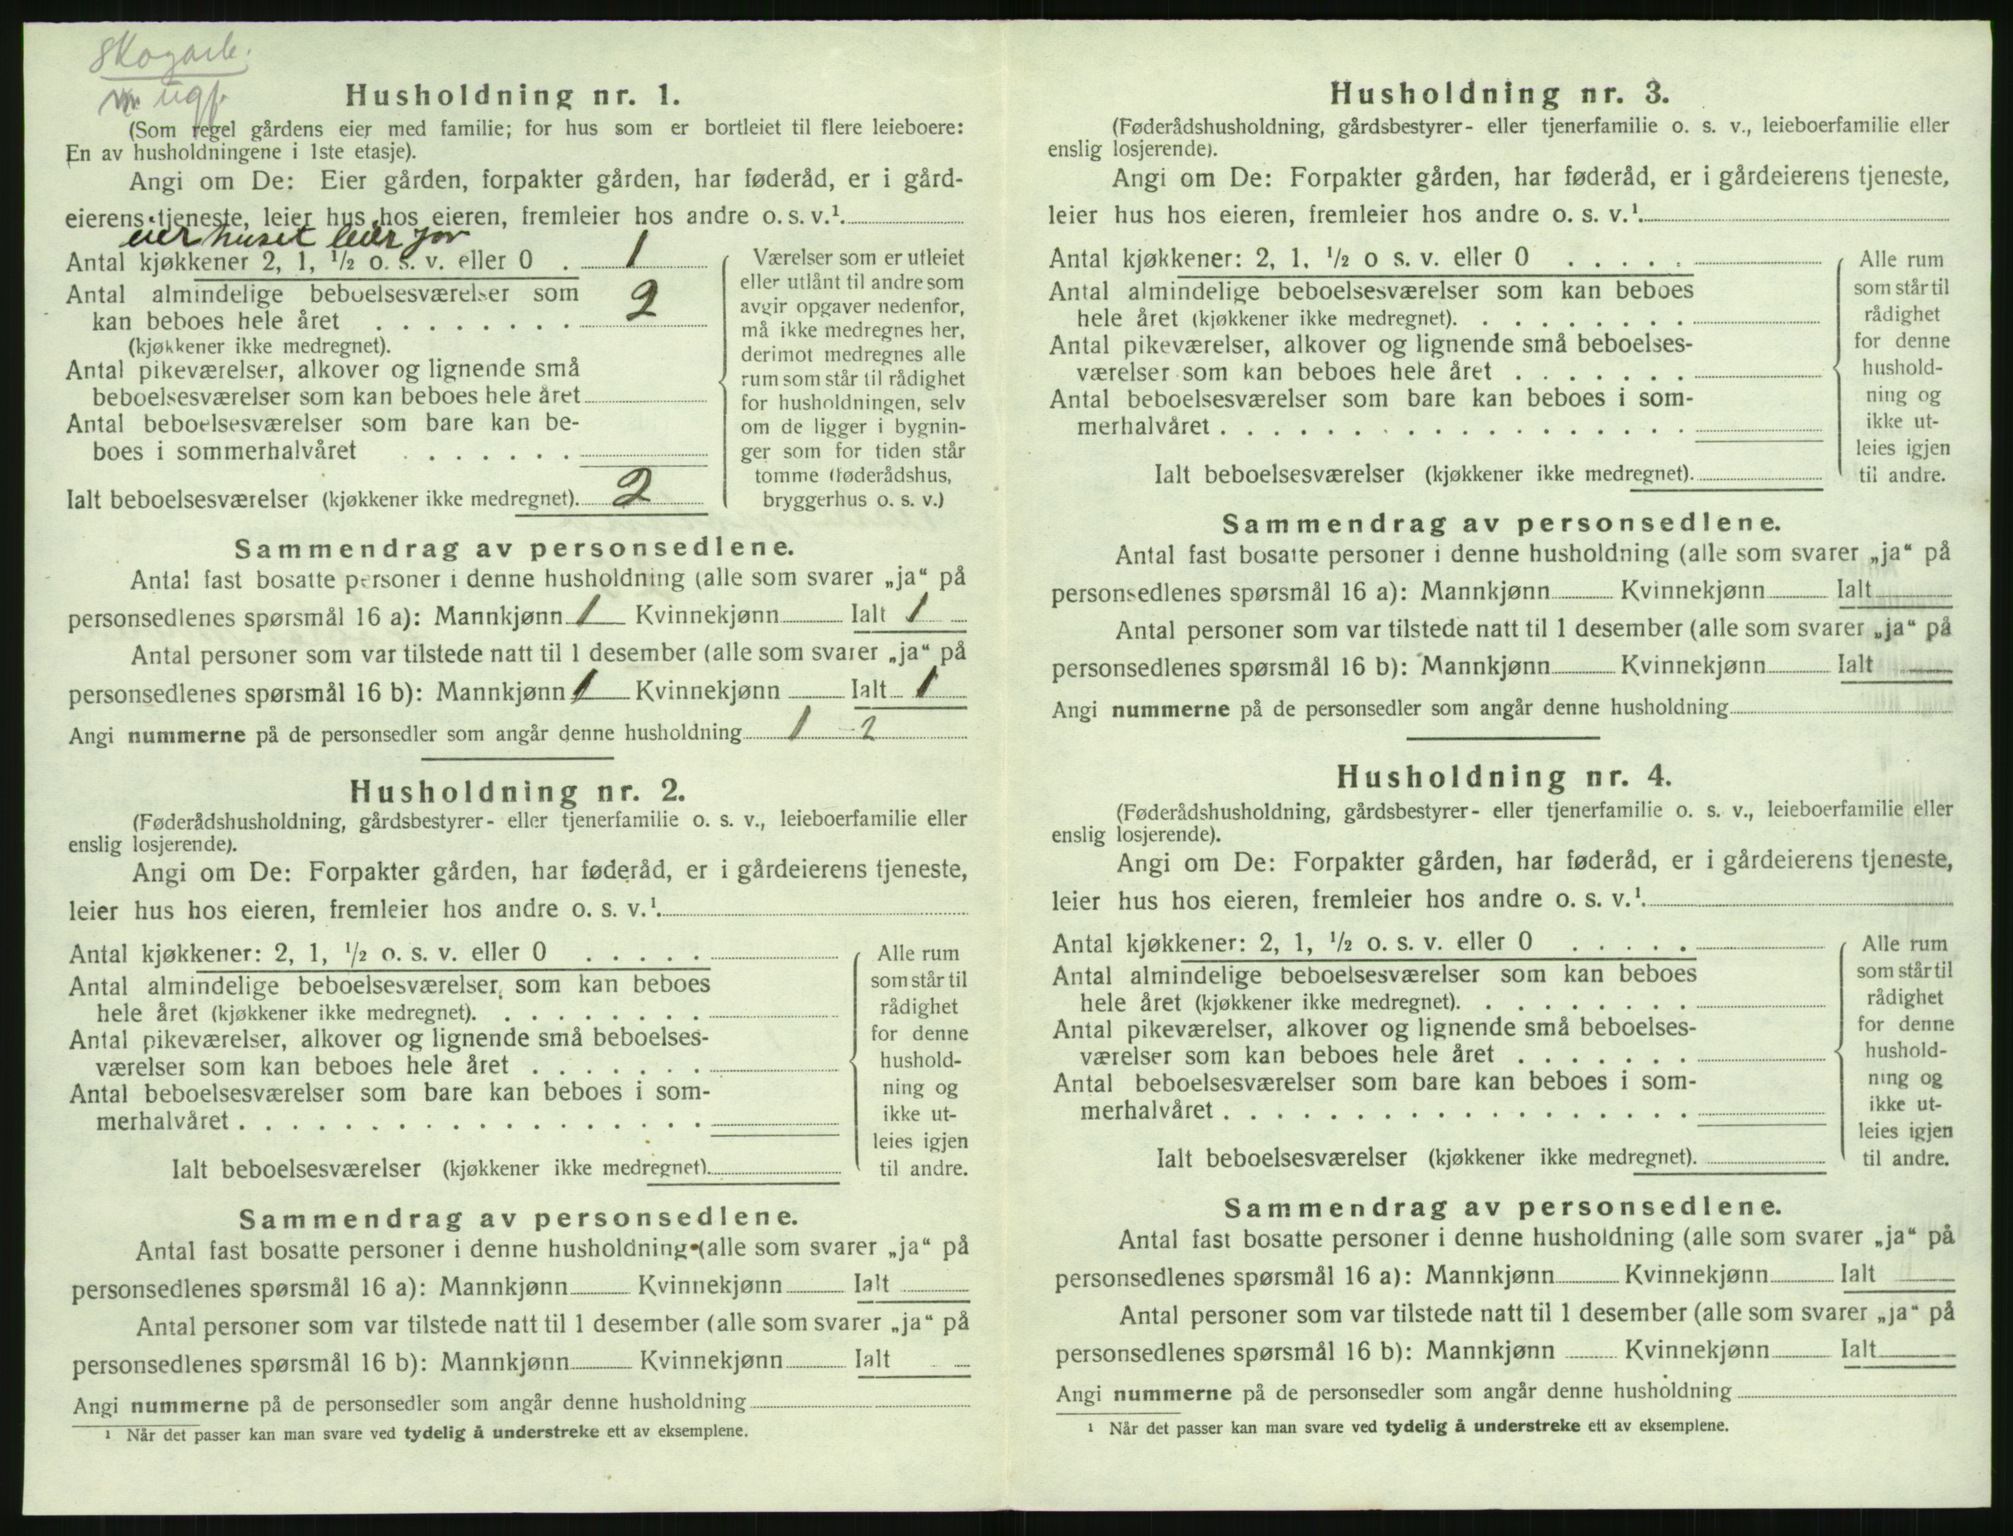 Skogarb.
m ugf.
Husholdning nr. 1.
(Som regel gårdens eier med familie; for hus som er bortleiet til flere leieboere:
En av husholdningene i 1ste etasje).
Angi om De: Eier gården, forpakter gården, har føderåd, er i gård-
eierens tjeneste, leier hus hos eieren, fremleier hos andre o. s. v.¹.
eier huset leier jor
Antal kjøkkener 2, 1, ½ o. s. v. eller 0 . 1
Antal almindelige beboelsesværelser som
kan beboes hele året . . . . . . . . 2
(kjøkkener ikke medregnet).
Antal pikeværelser, alkover og lignende små
beboelsesværelser som kan beboes hele året
Antal beboelsesværelser som bare kan be-
boes i sommerhalvåret . . . . . . .
Ialt beboelsesværelser (kjøkkener ikke medregnet). 2
Værelser som er utleiet
eller utlånt til andre som
avgir opgaver nedenfor,
må ikke medregnes her,
derimot medregnes alle
rum som står til rådighet
for husholdningen, selv
om de ligger i bygnin-
ger som for tiden står
tomme (føderådshus,
bryggerhus o. s. v.)
Sammendrag av personsedlene.
Antal fast bosatte personer i denne husholdning (alle som svarer „ja“ på
personsedlenes spørsmål 16 a): Mannkjønn 1 Kvinnekjønn Ialt 1
Antal personer som var tilstede natt til 1 desember (alle som svarer „ja“ på
personsedlenes spørsmål 16 b): Mannkjønn 1 Kvinnekjønn Ialt 1
Angi nummerne på de personsedler som angår denne husholdning 1 - 2
Husholdning nr. 2.
(Føderådshusholdning, gårdsbestyrer- eller tjenerfamilie o. s. v., leieboerfamilie eller
enslig losjerende).
Angi om De: Forpakter gården, har føderåd, er i gårdeierens tjeneste,
leier hus hos eieren, fremleier hos andre o. s. v.¹.
Antal kjøkkener: 2, 1, ½ o. s. v. eller 0 . . . . .
Antal almindelige beboelsesværelser som kan beboes
hele året (kjøkkener ikke medregnet). . . . . . . . .
Antal pikeværelser, alkover og lignende små beboelses-
værelser som kan beboes hele året . . . . . . .
Antal beboelsesværelser som bare kan beboes i som-
merhalvåret . . . . . . . . . . . . . . . . . .
Ialt beboelsesværelser (kjøkkener ikke medregnet).
Alle rum
som står til
rådighet
for denne
hushold-
ning og
ikke ut-
leies igjen
til andre.
Sammendrag av personsedlene.
Antal fast bosatte personer i denne husholdning (alle som svarer „ja“ på
personsedlenes spørsmål 16 a): Mannkjønn Kvinnekjønn Ialt
Antal personer som var tilstede natt til 1 desember (alle som svarer „ja“ på
personsedlenes spørsmål 16 b): Mannkjønn Kvinnekjønn Ialt
Angi nummerne på de personsedler som angår denne husholdning
¹ Når det passer kan man svare ved tydelig å understreke ett av eksemplene.
Husholdning nr. 3.
(Føderådshusholdning, gårdsbestyrer- eller tjenerfamilie o. s. v., leieboerfamilie eller
enslig losjerende).
Angi om De: Forpakter gården, har føderåd, er i gårdeierens tjeneste,
leier hus hos eieren, fremleier hos andre o. s. v.¹.
Antal kjøkkener: 2, 1, ½ o s. v. eller 0 . . . . .
Antal almindelige beboelsesværelser som kan beboes
hele året (kjøkkener ikke medregnet). . . . . . . . .
Antal pikeværelser, alkover og lignende små beboelses-
værelser som kan beboes hele året . . . . . . .
Antal beboelsesværelser som bare kan beboes i som-
merhalvåret . . . . . . . . . . . . . . . . . .
Ialt beboelsesværelser (kjøkkener ikke medregnet).
Alle rum
som står til
rådighet
for denne
hushold-
ning og
ikke ut-
leies igjen
til andre.
Sammendrag av personsedlene.
Antal fast bosatte personer i denne husholdning (alle som svarer „ja“ på
personsedlenes spørsmål 16 a): Mannkjønn Kvinnekjønn Ialt
Antal personer som var tilstede natt til 1 desember (alle som svarer „ja“ på
personsedlenes spørsmål 16 b): Mannkjønn Kvinnekjønn Ialt
Angi nummerne på de personsedler som angår denne husholdning
Husholdning nr. 4.
(Føderådshusholdning, gårdsbestyrer- eller tjenerfamilie o. s. v., leieboerfamilie eller
enslig losjerende).
Angi om De: Forpakter gården, har føderåd, er i gårdeierens tjeneste,
leier hus hos eieren, fremleier hos andre o. s. v.¹.
Antal kjøkkener: 2, 1, ½ o. s. v. eller 0 . . . . .
Antal almindelige beboelsesværelser som kan beboes
hele året (kjøkkener ikke medregnet). . . . . . . . .
Antal pikeværelser, alkover og lignende små beboelses-
værelser som kan beboes hele året . . . . . . .
Antal beboelsesværelser som bare kan beboes i som-
merhalvåret . . . . . . . . . . . . . . . . . .
Ialt beboelsesværelser (kjøkkener ikke medregnet).
Alle rum
som står til
rådighet
for denne
hushold-
ning og
ikke ut-
leies igjen
til andre.
Sammendrag av personsedlene.
Antal fast bosatte personer i denne husholdning (alle som svarer „ja“ på
personsedlenes spørsmål 16 a): Mannkjønn Kvinnekjønn Ialt
Antal personer som var tilstede natt til 1 desember (alle som svarer „ja“ på
personsedlenes spørsmål 16 b): Mannkjønn Kvinnekjønn Ialt
Angi nummerne på de personsedler som angår denne husholdning
¹ Når det passer kan man svare ved tydelig å understreke ett av eksemplene.